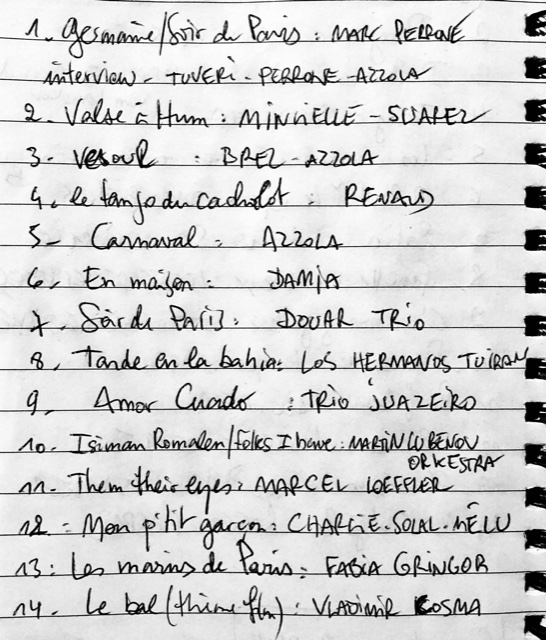 1. Germaine/Soir de Paris : MARC PERRONE
interview - TUVERI - PERRONE - AZZOLA
2. Valse à Hum : MINVIELLE - SUAREZ
3 - Vesoul : BREL - AZZOLA
4. le tango du cachalot : RENAUD
5 - Carnaval : AZZOLA
6. En maison : DAMIA
7 - Soir de Paris : DOUAR TRIO
8. Tande en la bahia : LOS HERMANOS TUIRAN
9. Amor Cuado : TRIO JUAZEIRO
10. Isiman Romalen/folks I have : MARTIN LUBENOV
ORKESTRA
11 - Them their eyes : MARCEL LOEFFLER
12 = Mon p'tit garçon : CHARLIE-SOLAL-MÉLU
13 : Les marins de Paris : FABIA GRINGOR
14 - Le bal (thème film) : VLADIMIR KOSMA